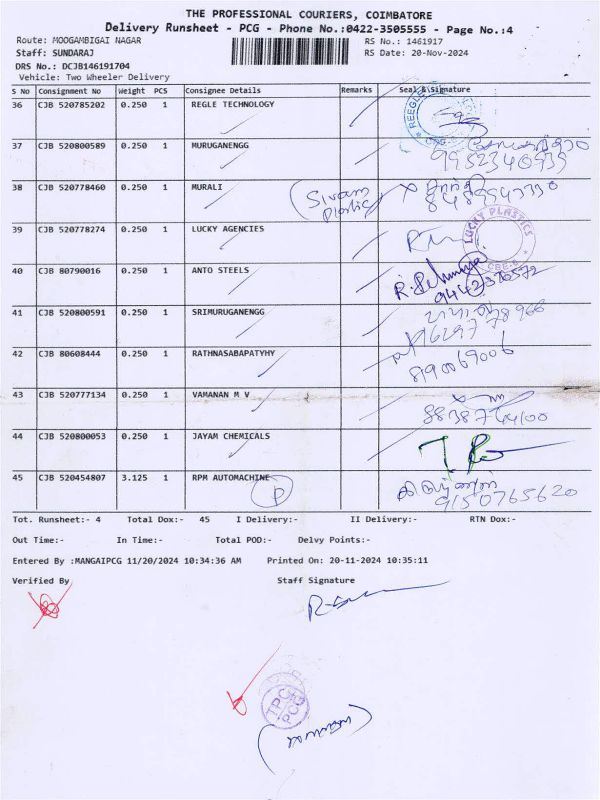 THE PROFESSIONAL COURIERS, COIMBATORE
Delivery Runsheet - PCG - Phone No.:0422-3505555 - Page No.:4
Route: MOOGAMBIGAI NAGAR RS No.: 1461917
Staff: SUNDARAJ RS Date: 20-Nov-2024
DRS No.: DCJB146191704
Vehicle: Two Wheeler Delivery
S No Consignment No Weight PCS Consignee Details Remarks Seal &\Signature
36 CJB 520785202 0.250 1 REGLE TECHNOLOGY
37 CJB 520800589 0.250 1 MURUGANENGG
38 CJB 520778460 0.250 1 MURALI (Sivam
Plastic)
39 CJB 520778274 0.250 1 LUCKY AGENCIES LUCKY PLASTICS
CBE-6
40 CJB 80790016 0.250 1 ANTO STEELS
41 CJB 520800591 0.250 1 SRIMURUGANENGG
42 CJB 80608444 0.250 1 RATHNASABAPATYHY 8190069006
43 CJB 520777134 0.250 1 VAMANAN M V 8838744100
44 CJB 520800053 0.250 1 JAYAM CHEMICALS
45 CJB 520454807 3.125 1 RPM AUTOMACHINE P
9150765620
Tot. Runsheet:- 4 Total Dox:- 45 I Delivery:- II Delivery:- RTN Dox:-
Out Time:- In Time:- Total POD:- Delvy Points:-
Entered By :MANGAIPCG 11/20/2024 10:34:36 AM Printed On: 20-11-2024 10:35:11
Verified By Staff Signature
TPC
PCG